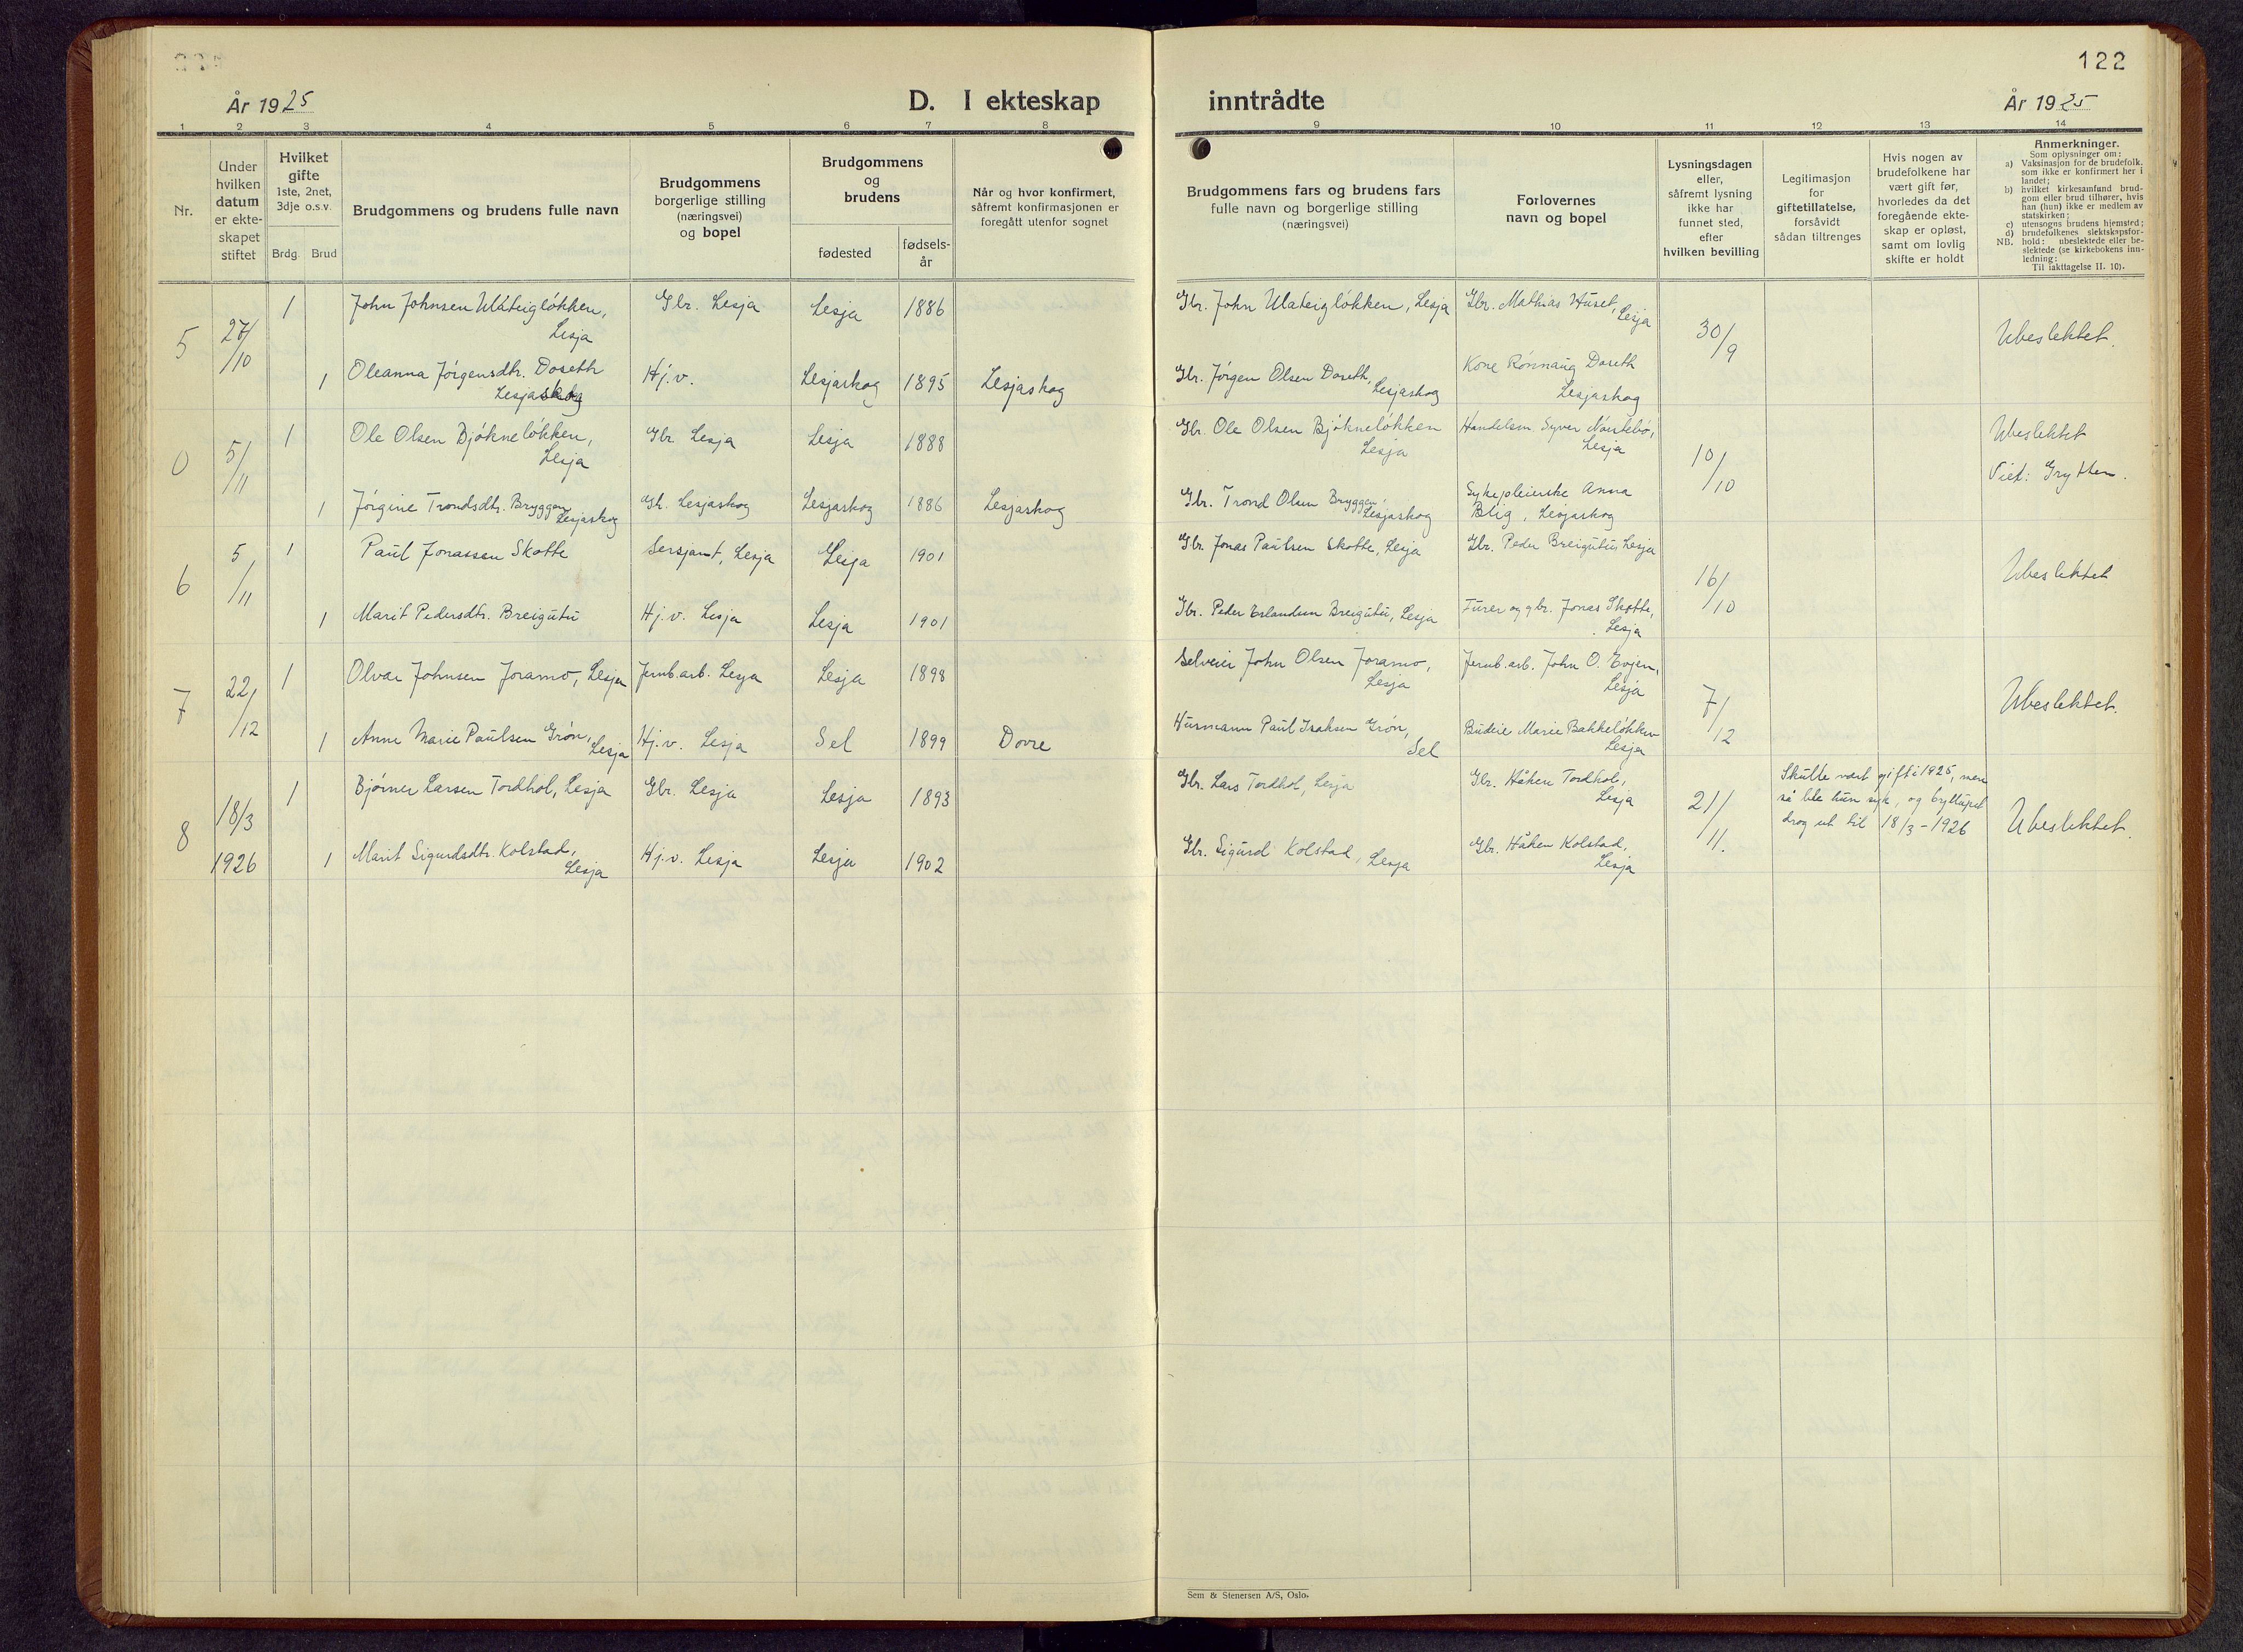 122
År 1925
D. I ekteskap
inntrådte
År 1925
1 2 3 4 5 6 7 8
9 10 11 12 13 14
Nr.
Under
hvilken
datum
er ekte-
skapet
stiftet
Hvilket
gifte
1ste, 2net,
3dje o.s.v.
Brdg.
Brud
Brudgommens og brudens fulle navn
Brudgommens
borgerlige stilling
(næringsvei)
og bopel
Brudgommens
og
brudens
fødested
fødsels-
år
Når og hvor konfirmert,
såfremt konfirmasjonen er
foregått utenfor sognet
Brudgommens fars og brudens fars
fulle navn og borgerlige stilling
(næringsvei)
Forlovernes
navn og bopel
Lysningsdagen
eller,
såfremt lysning
ikke har
funnet sted,
efter
hvilken bevilling
Legitimasjon
for
giftetillatelse,
forsåvidt
sådan tiltrenges
Hvis nogen av
brudefolkene har
vært gift før,
hvorledes da det
foregående ekte-
skap er opløst,
samt om lovlig
skifte er holdt
Anmerkninger.
Som oplysninger om:
a) Vaksinasjon for de brudefolk,
som ikke er konfirmert her i
landet;
b) hvilket kirkesamfund brud-
gom eller brud tilhører, hvis
han (hun) ikke er medlem av
statskirken;
c) utensogns brudens hjemsted;
d) brudefolkenes slektskapsfor-
NB. hold: ubeslektede eller be-
slektede (se kirkebokens inn-
ledning:
Til iakttagelse II. 10).
5 27/10 1 John Johnsen Ulateigløkken,
Lesja
Gbr. Lesja Lesja 1886
Gbr. John Ulateigløkken, Lesja
Gbr. Mathias Huset,
Lesja
30/9
Ubeslektet.
1 Oleanna Jørgensdtr. Doseth
Lesjaskog
Hj.v. Lesjaskog 1895 Lesjaskog
Gbr. Jørgen Olsen Doseth,
Lesjaskog
Kone Rønnaug Doseth
Lesjaskog
0 5/11 1 Ole Olsen Bjøkneløkken,
Lesja
Gbr. Lesja Lesja 1888
Gbr. Ole Olsen Bjøkneløkken
Lesja
Handelsm. Syver Nørstebø,
Lesja
10/10
Ubeslektet
Viet: Grytten.
1 Jørgine Trondsdtr. Bryggen
Lesjaskog
Lesjaskog Lesjaskog 1886 Lesjaskog
Gbr. Trond Olsen Bryggen,
Lesjaskog
Sykepleierske Anna
Blig, Lesjaskog
6 5/11 1 Paul Jonassen Skotte
Sersjant, Lesja Lesja 1901
Gbr. Jonas Paulsen Skotte, Lesja
Gbr. Peder Breigutu Lesja
16/10
Ubeslektet
1 Marit Pedersdtr. Breigutu
Hj.v. Lesja Lesja 1901
Gbr. Peder Erlandsen Breigutu, Lesja
Furer og gbr. Jonas Skotte,
Lesja
7 22/12 1 Olvar Johnsen Joramo, Lesja
Jernb.arb. Lesja Lesja 1898
Selveier John Olsen Joramo,
Lesja
Jernb.arb. John O. Enjen,
Lesja
7/12
Ubeslektet.
1 Anne Marie Paulsen Grøn,
Lesja
Hj.v. Lesja Sel 1899 Dovre
Husmann Paul Isaksen Grøn,
Sel
Budeie Marie Bakkeløkken
Lesja
8 18/3 1926 1 Bjørner Larsen Tordhol, Lesja
Gbr. Lesja Lesja 1893
Gbr. Lars Tordhol, Lesja
Gbr. Håken Tordhol,
Lesja
21/11.
Skulle vært gift i 1925, men
så ble hun syk, og bryllupet
drog ut til 18/3-1926
Ubeslektet.
1 Marit Sigurdsdtr. Kolstad,
Lesja
Hj.v. Lesja Lesja 1902
Gbr. Sigurd Kolstad, Lesja
Gbr. Håken Kolstad,
Lesja
Sem & Stenersen A/S, Oslo.